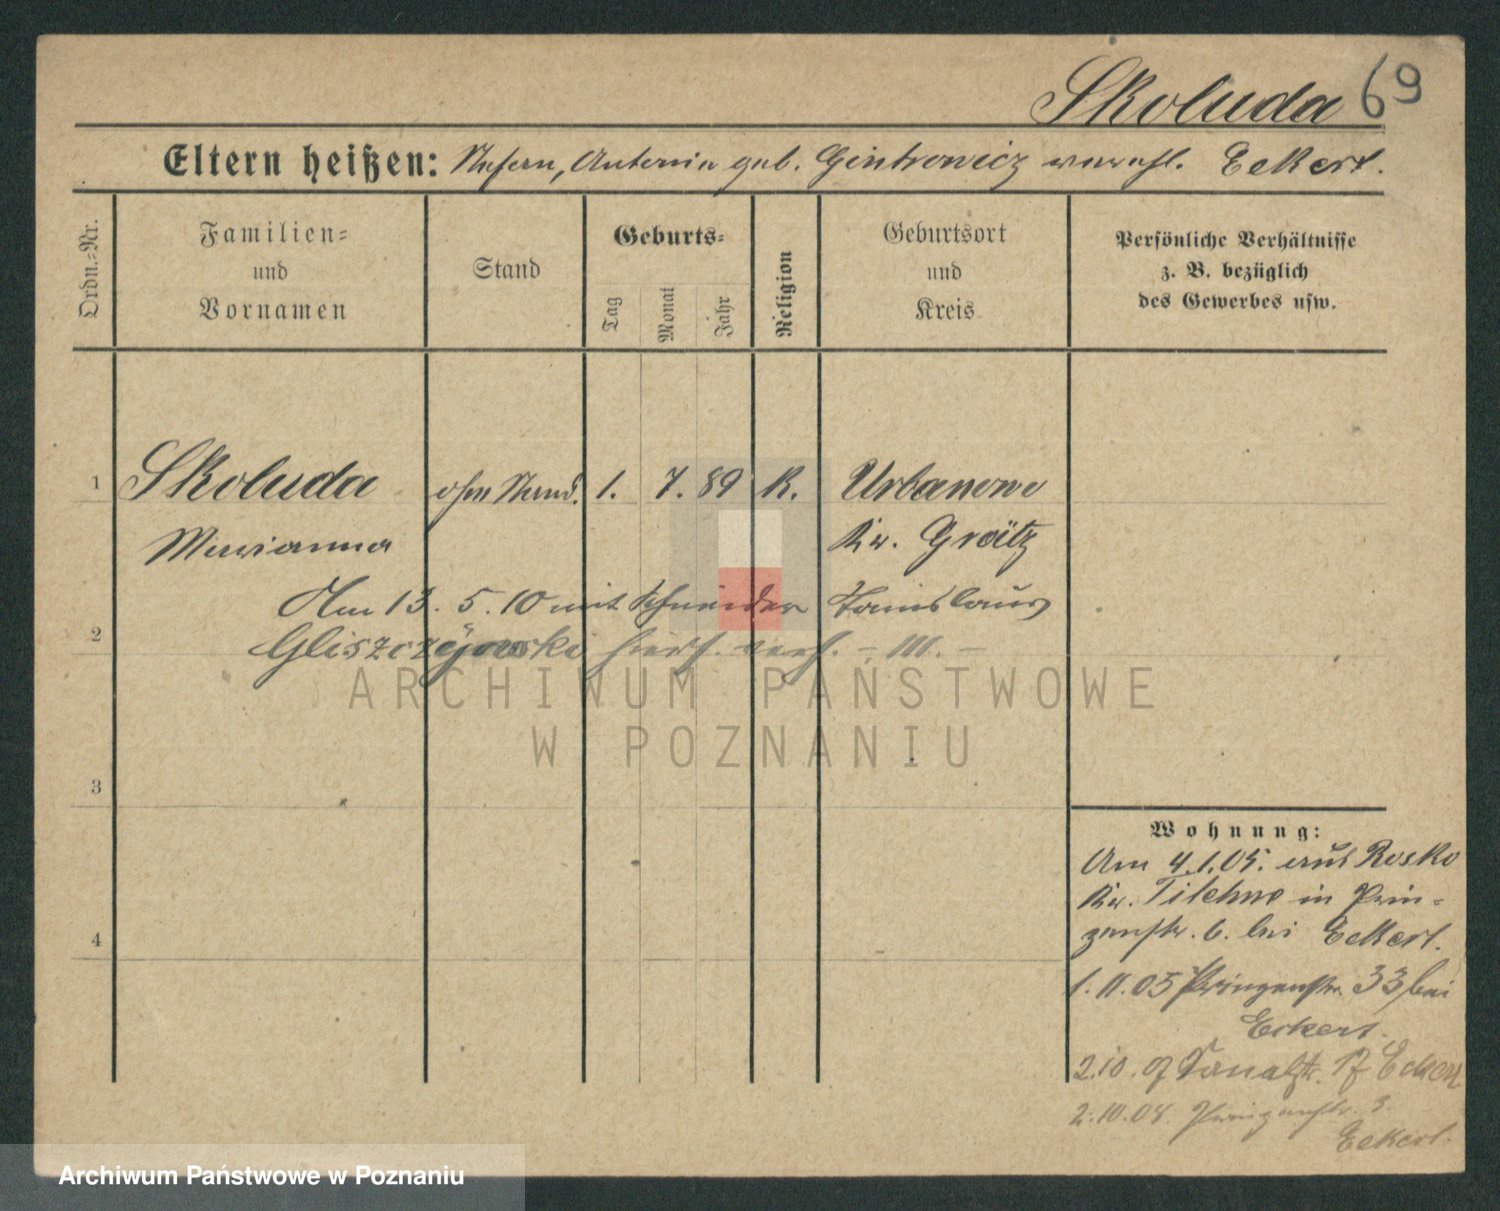 Skoluda 69
Eltern heißen: Stefan, Antonia geb. Gintrowicz verehl. Eckert.
Ordn.-Nr.
Familien-
und
Vornamen
Stand
Geburts-
Tag
Monat
Jahr
Religion
Geburtsort
und
Kreis
Persönliche Verhältnisse
z. B. bezüglich
des Gewerbes usw.
1 Skoluda ohne Stand. 1. 7. 89 K. Urbanowo
Marianna Kr. Grätz
Am 13. 5. 10 mit Schneider Stanislaus
2 Gliszczyjnski hierf. verh. - III. -
ARCHIWUM PAŃSTWOWE
W POZNANIU
3
4
Wohnung:
Am 4.1.05. aus Rosko
Kr. Filehne in Prin-
zenstr. 6. bei Eckert.
1.11.05 Prinzenstr. 33 bei
Eckert.
2.10.07 Kanalstr. 17 Eckert
2.10.08. Prinzenstr. 3.
Eckert.
Archiwum Państwowe w Poznaniu